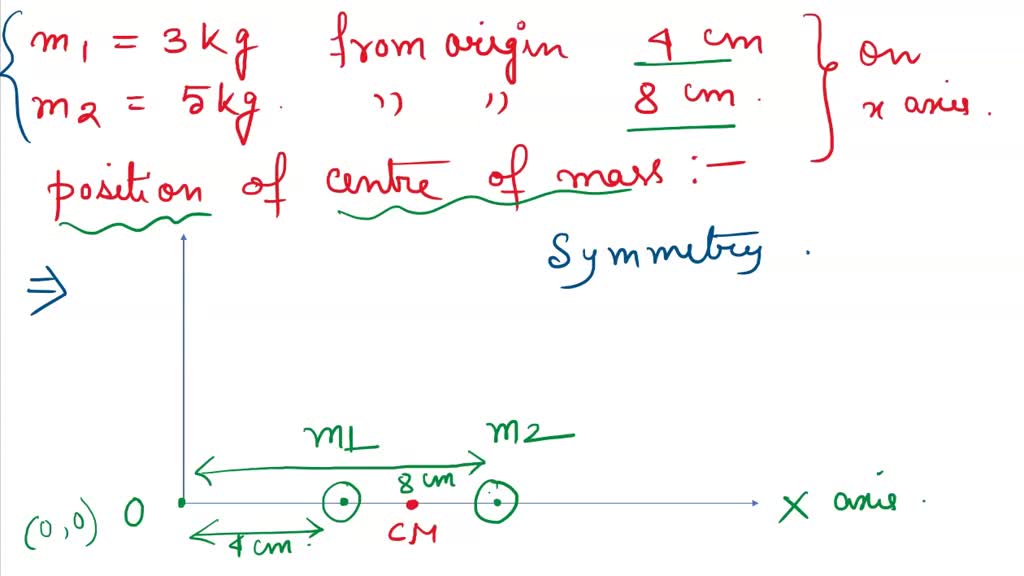 m1 = 3 kg from origin 4 cm
m2 = 5 kg. " " 8 cm.
on
x axis.
position of centre of mass :-
Symmetry.
⇒
m1 m2
8 cm
(0,0) O X axis.
4 cm.
CM